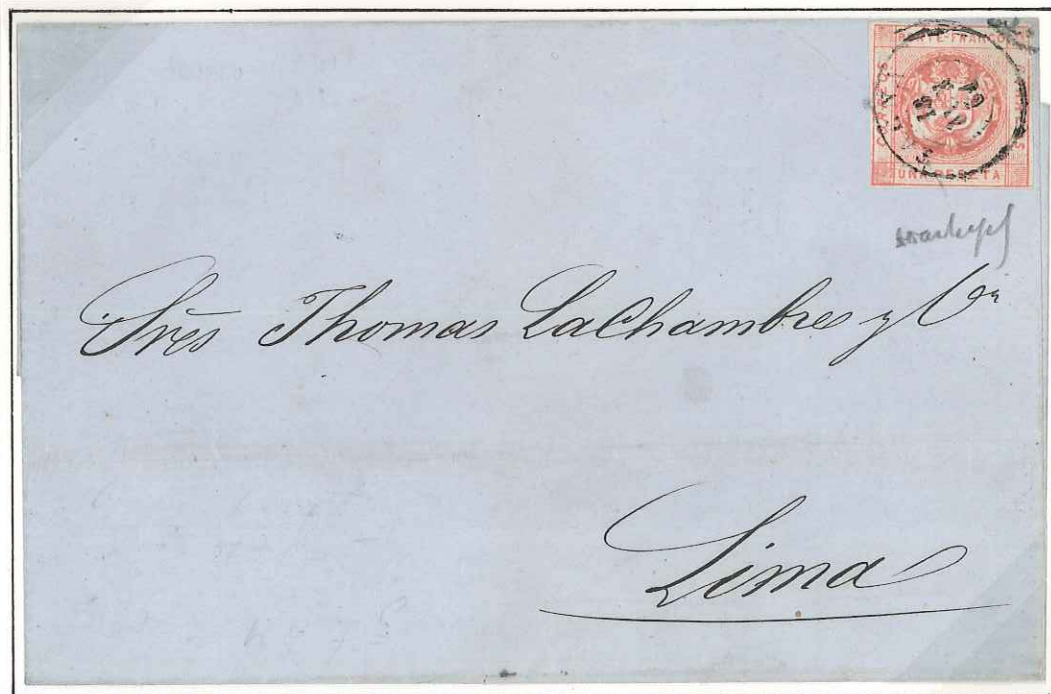 PORTE FRANCO
CORREOS
UNA PESETA
Srēs Thomas LaChambre y Cia
Lima